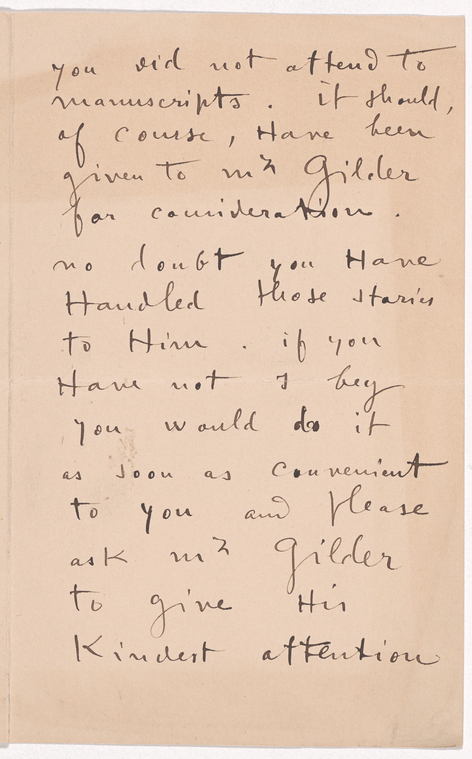 you did not attend to
manuscripts. it should,
of course, Have been
given to mr Gilder
for consideration.
no doubt you Have
Handled those stories
to Him. if you
Have not I beg
you would do it
as soon as convenient
to you and please
ask mr Gilder
to give His
Kindest attention